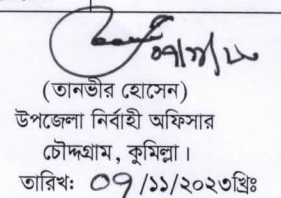 (তানভীর হোসেন)
উপজেলা নির্বাহী অফিসার
চৌদ্দগ্রাম, কুমিল্লা।
তারিখ: ০৭/১১/২০২৩খ্রিঃ